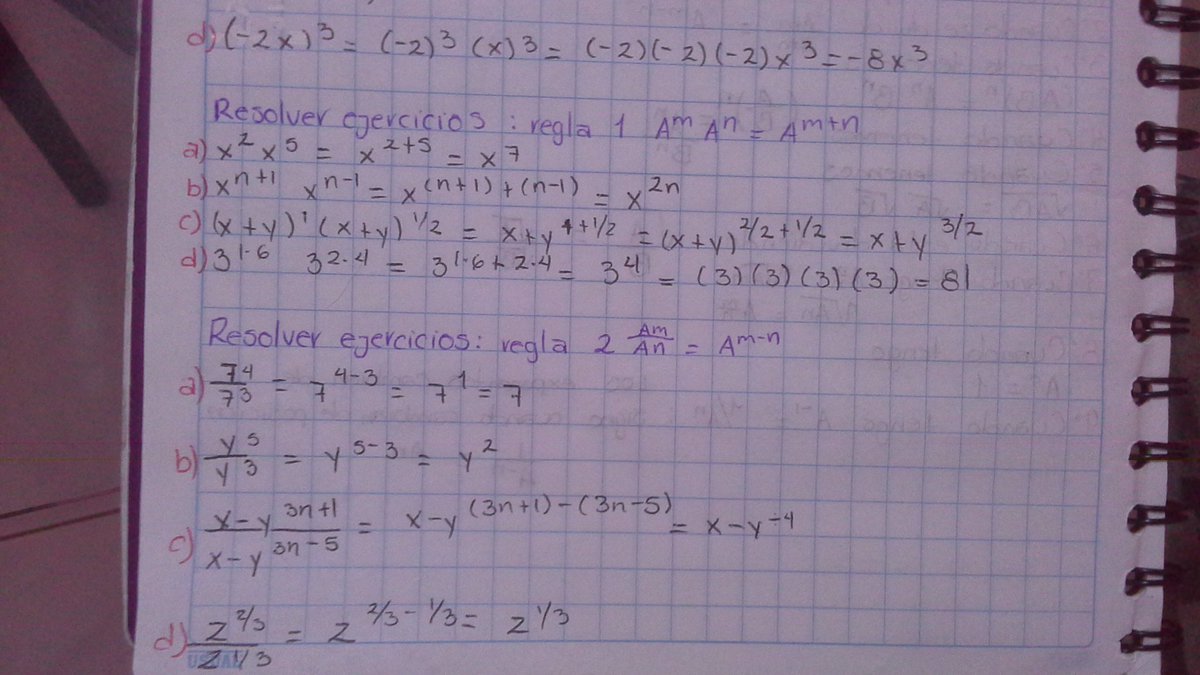 d) (-2x)³ = (-2)³ (x)³ = (-2)(-2)(-2)x³ = -8x³
Resolver ejercicios : regla 1 Aᵐ Aⁿ = Aᵐ⁺ⁿ
a) x² x⁵ = x²⁺⁵ = x⁷
b) xⁿ⁺¹ xⁿ⁻¹ = x⁽ⁿ⁺¹⁾⁺⁽ⁿ⁻¹⁾ = x²ⁿ
c) (x+y)¹ (x+y)^1/2 = x+y^1+1/2 = (x+y)^2/2+1/2 = x+y^3/2
d) 3^1.6 3^2.4 = 3^1.6+2.4 = 3⁴ = (3)(3)(3)(3) = 81
Resolver ejercicios: regla 2 Am/An = Aᵐ⁻ⁿ
a) 7⁴/7³ = 7⁴⁻³ = 7¹ = 7
b) y⁵/y³ = y⁵⁻³ = y²
c) x-y^3n+1/x-y^3n-5 = x-y^(3n+1)-(3n-5) = x-y⁻⁴
d) z^2/3/z^1/3 = z^2/3-1/3 = z^1/3